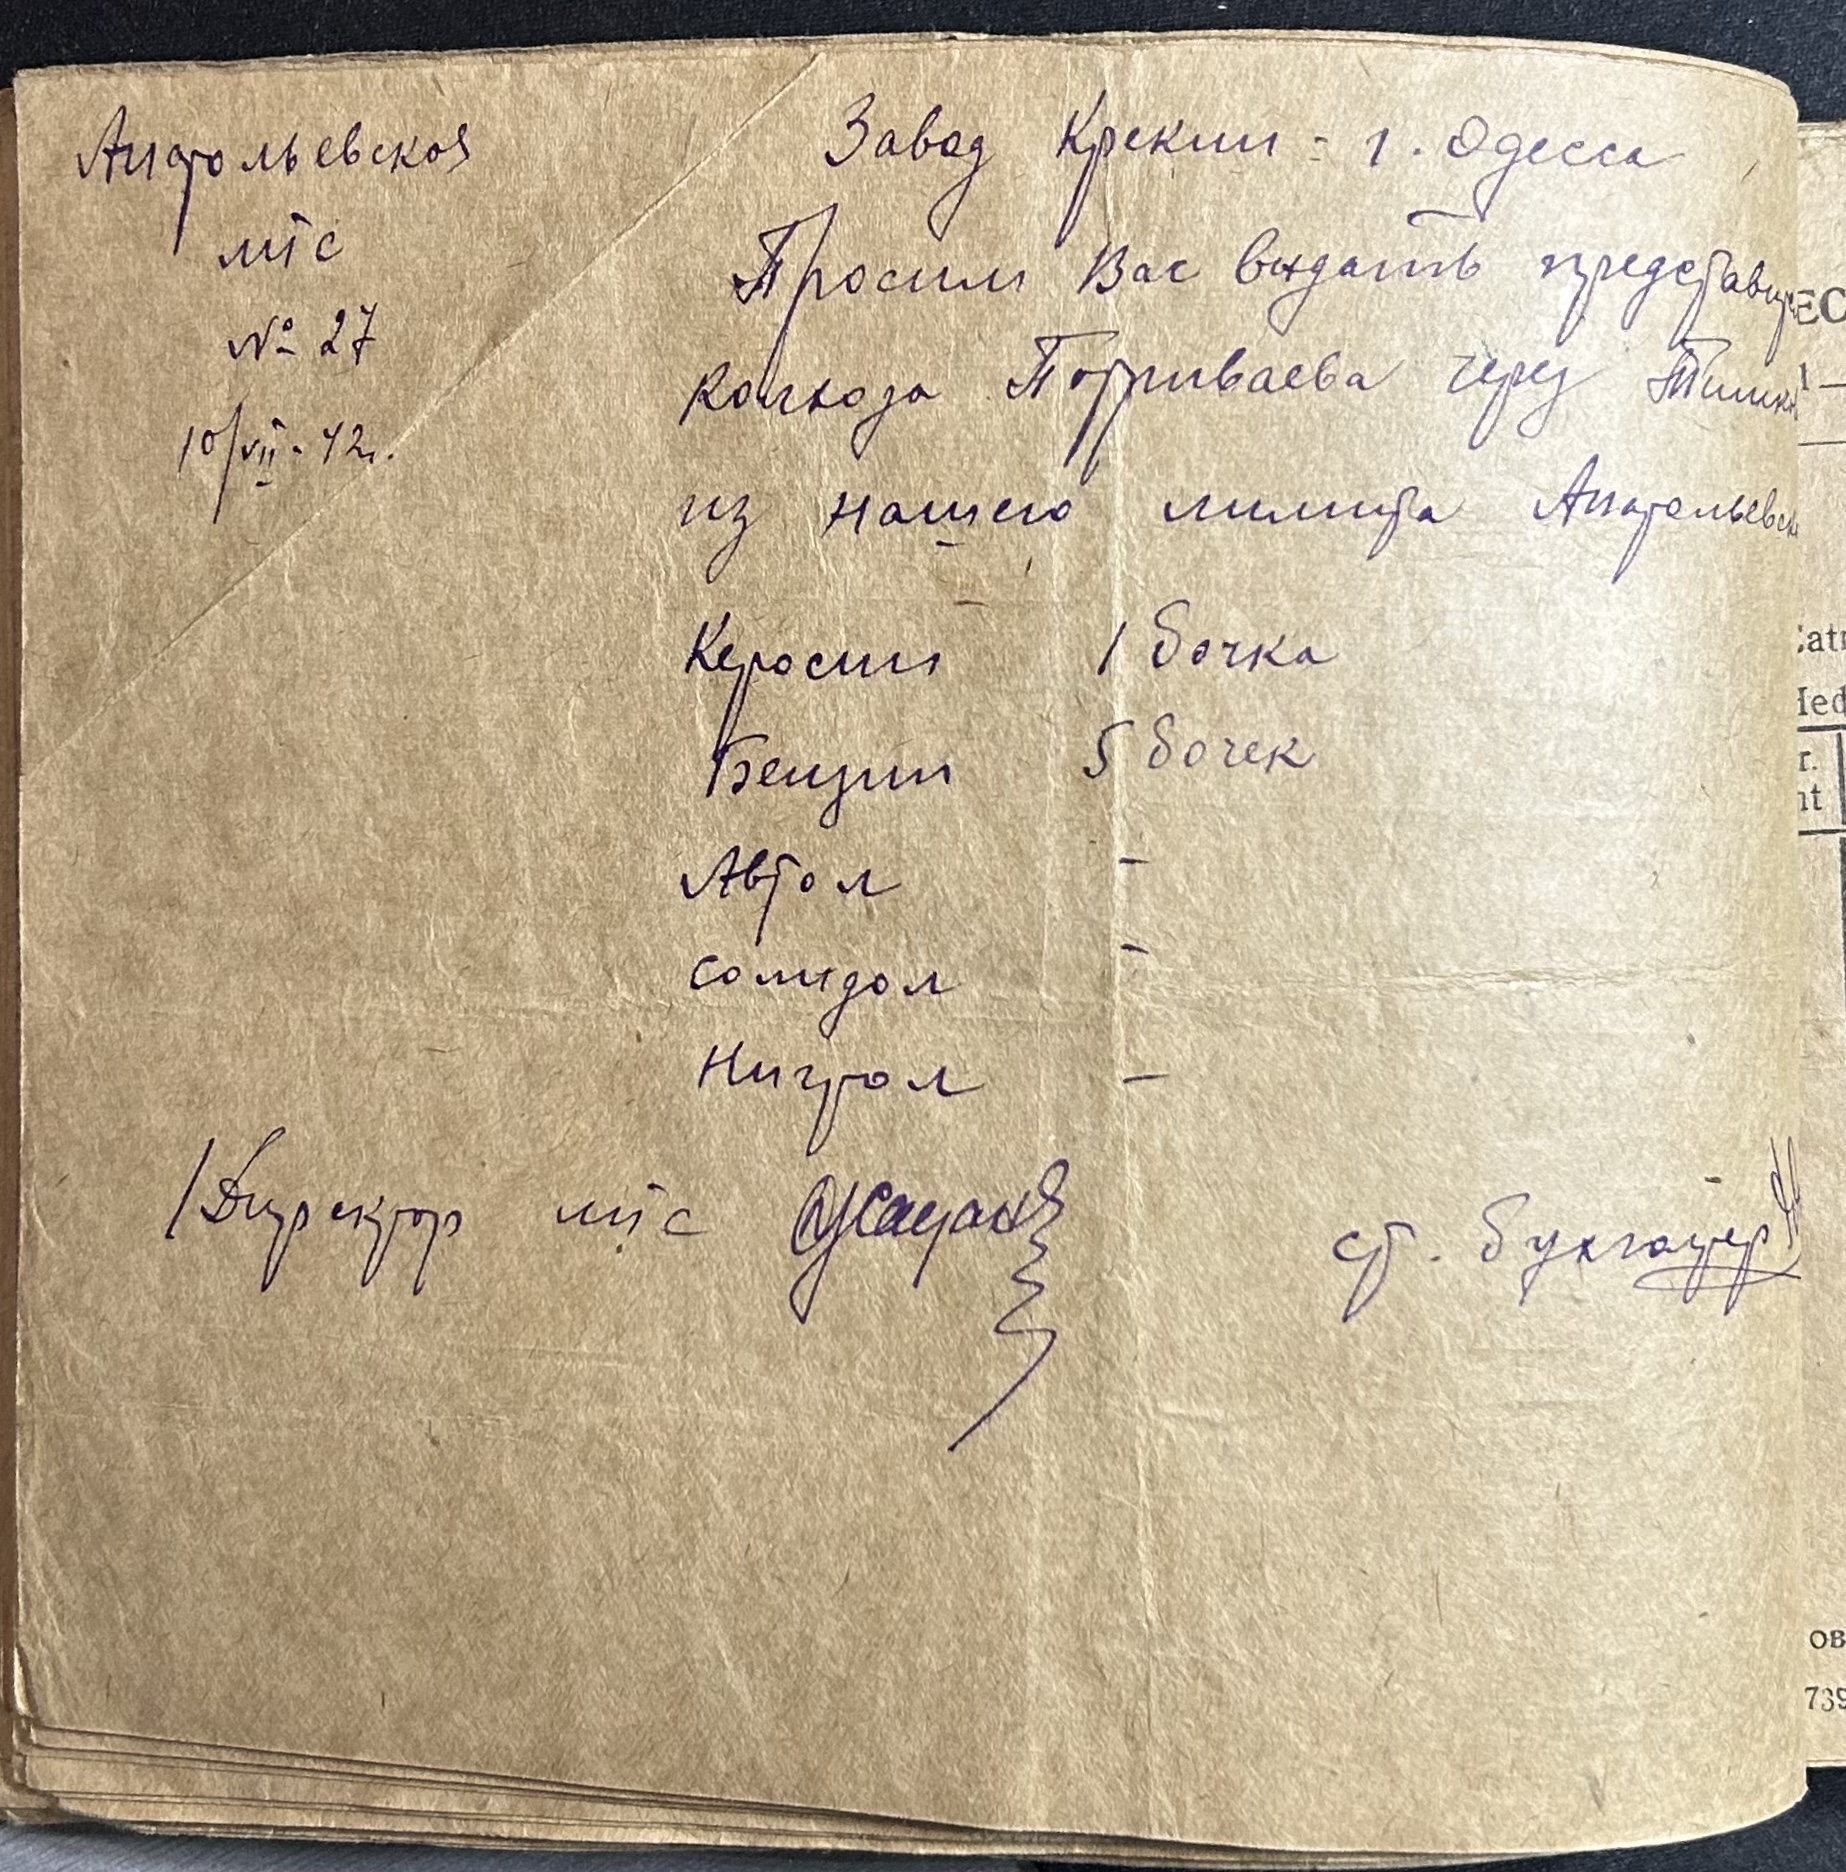 Анатольевская
мтс
№ 27
10/VII-42г.
Завод Крекин - г. Одесса
Просим Вас выдать представи
колхоза Потриваева через
из нашего лимита Анатольевск
Керосин 1 бочка
Бензин 5 бочек
Автол -
Солидол -
Нигрол -
Директор мтс
ст. бухгалтер
ЕС
ОВ
739